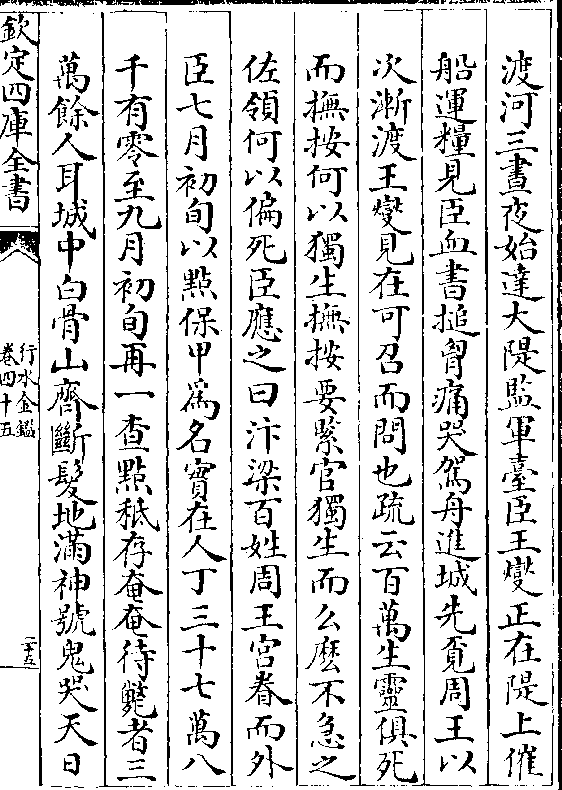 渡河三晝夜始達大隄監軍臺臣王燮正在隄上催
船運糧見臣血書搥胷痛哭駕舟進城先覓周王以
次漸渡王燮見在可召而問也疏云百萬生靈俱死
而撫按何以獨生撫按要緊官獨生而么麽不急之
佐領何以偏死臣應之曰汴梁百姓周王宮眷而外
臣七月初旬以點保甲爲名實在人丁三十七萬八
千有零至九月初旬再一查點秪存奄奄待斃者三
萬餘人耳城中白骨山齊斷髮地滿神號鬼哭天日
欽定四庫全書
行水金鑑
卷四十五
二十五